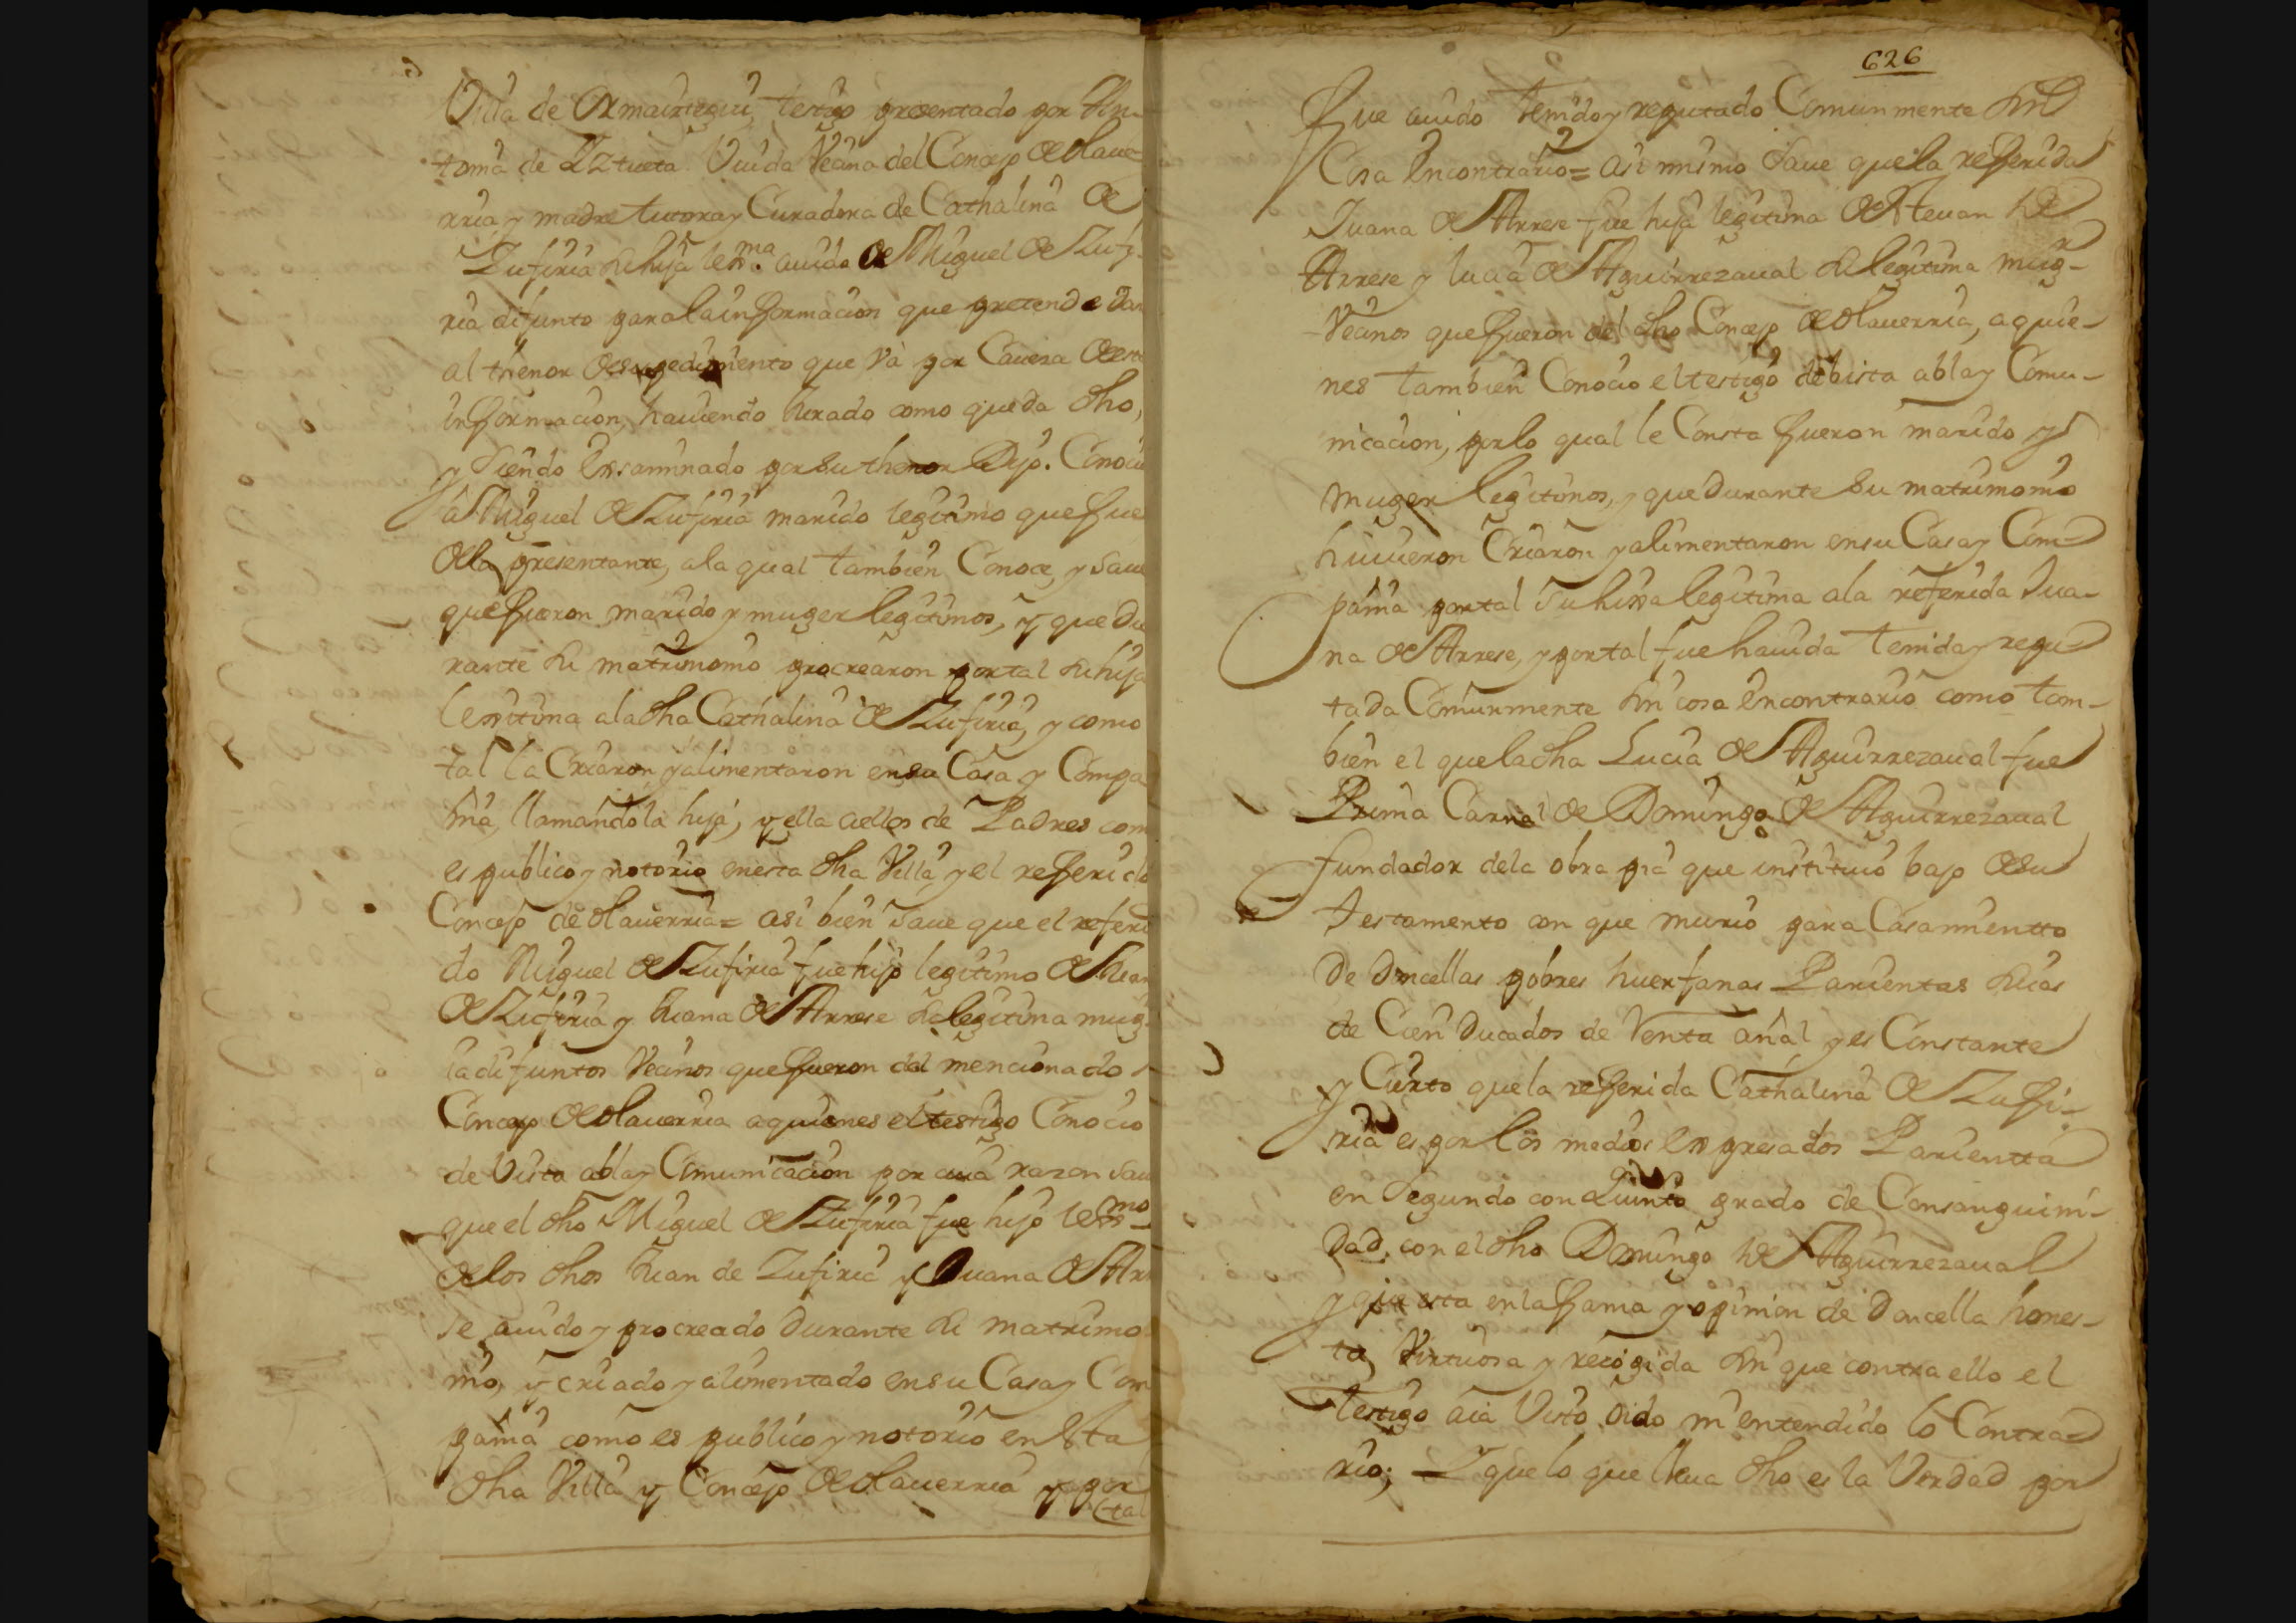 Villa de Ormaiztegui testigo presentado por An-
tonia de Yztueta Viuda Vecina del Concejo de olaue
rria, y madre tutora y Curadora de Cathalina de
Zufiria su hija lexma. auida de Miguel de Zufi-
ria difunto para la informacion que pretende dar
al thenor de su pedimento que va por Cauera de esta
informacion, hauiendo Jurado como queda dho,
y siendo Exsaminado por su thenor Dijo. Conocio
a Miguel de Zufiria marido legitimo que fue
de la presentante, a la qual tambien Conoce, y saue
que fueron marido y muger legitimos, y que du
rante su matrimonio procrearon por tal su hija
lexitima a la dha Cathalina de Zufiria, y como
tal la Criaron y alimentaron en su Casa y Compa
ñia, llamandola hija, y ella a ellos de Padres com
es publico y notorio en esta dha Villa, y el referido
Concejo de olauerria = asi bien saue que el referi
do Miguel de Zufiria fue hijo legitimo de Juan
de Zufiria y Juana de Arrese su legitima mug.
ia difuntos Vecinos que fueron del mencionado
Concejo de olauerria a quienes el testigo Conocio
de Vista abla y Comunicacion por cuia razon saue
que el dho Miguel de Zufiria fue hijo lexmo
de los dhos Juan de Zufiria y Juana de Arre
se auido y procreado durante su matrimo
nio, y criado y alimentado en su Casa y Com
pañia como es publico y notorio en esta
dha Villa y Concejo de olauerria y por
tal
626
fue auido tenido y reputado Comunmente sin
Cosa en contrario = asi mismo saue que la referida
Juana de Arrese fue hija legitima de Steuan de
Arrese y lucia de Aguirrezaual su legitima mugr
Vecinos que fueron del dho Concejo de olauerria, a quie-
nes tambien Conocio el testigo de bista abla y Comu-
nicacion, por lo qual le Consta fueron marido y
muger legitimos, y que durante su matrimonio
huuieron Criaron y alimentaron en su Casa y Com-
pañia por tal su hixa legitima a la referida Jua-
na de Arrese, y por tal fue hauida tenida y repu-
tada Comunmente sin cosa en contrario como tam-
bien el que la dha Lucia de Aguirrezaual fue
Prima Carnal de Domingo de Aguirrezaual
fundador de la obra pia que instituio bajo de su
testamento con que murio para Casamientto
de doncellas pobres huerfanas Parientas suias
de Cien ducados de Renta añal, y es Constante
y Cierto que la referida Cathalina de Zufi-
ria es por los medios expresados Parientta
en segundo con quinto grado de Consanguini-
dad, con el dho Domingo de Aguirrezaual
y que esta en la fama y opinion de doncella hones-
ta, Virtuosa y recogida sin que contra ello el
testigo aia Visto oido ni entendido lo Contra-
rio; Y que lo que lleua dho es la Verdad por